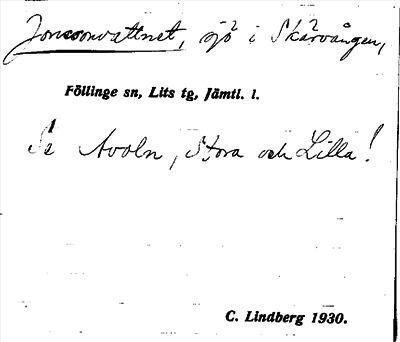 Jonsonvattnet, sjö i Skärvången,
Föllinge sn, Lits tg, Jämtl. l.
Se Avoln, Stora och Lilla!
C. Lindberg 1930.